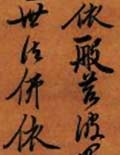 依般若波
世諸佛依